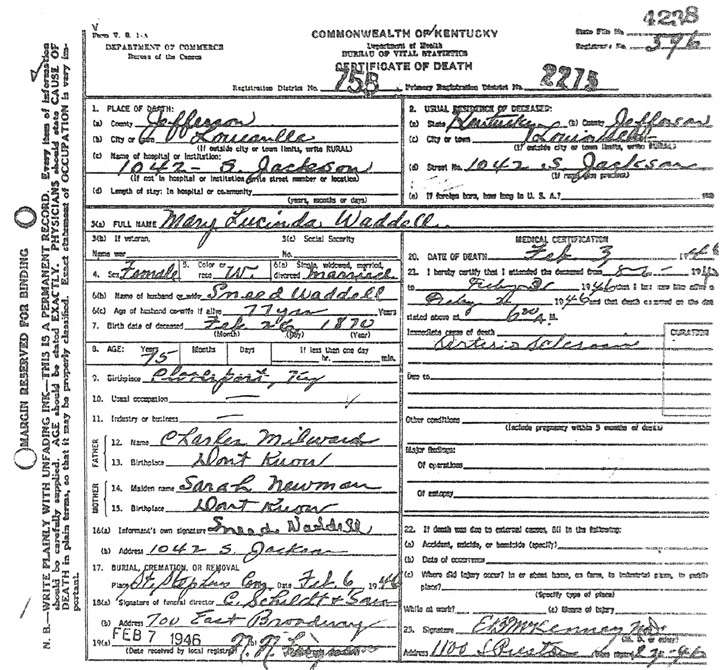 V
Form V. S. 1-A
DEPARTMENT OF COMMERCE
Bureau of the Census
COMMONWEALTH OF KENTUCKY
Department of Health
BUREAU OF VITAL STATISTICS
CERTIFICATE OF DEATH
State File No. 4238
Registrar's No. 596
Registration District No. 755 Primary Registration District No. 2275
1. PLACE OF DEATH:
(a) County Jefferson
(b) City or town Louisville
(If outside city or town limits, write RURAL)
(c) Name of hospital or institution:
1042 - S Jackson
(If not in hospital or institution write street number or location)
(d) Length of stay: In hospital or community
(years, months or days)
2. USUAL RESIDENCE OF DECEASED:
(a) State Kentucky (b) County Jefferson
(c) City or town Louisville
(If outside city or town limits, write RURAL)
(d) Street No. 1042 S. Jackson
(If rural give precinct)
(e) If foreign born, how long in U. S. A.?
3(a) FULL NAME Mary Lucinda Waddell
3(b) If veteran,
Name war
3(c) Social Security
No.
4. Sex Female 5. Color or race W 6(a) Single, widowed, married, divorced married
6(b) Name of husband or wife Sneed Waddell
6(c) Age of husband or wife if alive 77 years
7. Birth date of deceased Feb 26 1870
(Month) (Day) (Year)
8. AGE: Years 75 Months Days If less than one day
hr. min.
9. Birthplace Cloverport, Ky
10. Usual occupation —
11. Industry or business —
FATHER
12. Name Charles Milward
13. Birthplace Dont Know
MOTHER
14. Maiden name Sarah Newman
15. Birthplace Dont Know
16(a) Informant's own signature Sneed Waddell
(b) Address 1042 S. Jackson
17. BURIAL, CREMATION, OR REMOVAL
Place St. Stephens Cem Date Feb 6 1946
18(a) Signature of funeral director C. Schildt & Son
(b) Address 700 East Broadway
19(a) FEB 7 1946
(Date received by local registrar)
MEDICAL CERTIFICATION
20. DATE OF DEATH Feb 3 1946
21. I hereby certify that I attended the deceased from
to 1946 that I last saw him alive on
1946 and that death occurred on the date
stated above at 6 A M.
Immediate cause of death DURATION
Arterio Sclerosis
Due to
Other conditions
(Include pregnancy within 3 months of death)
Major findings:
Of operations
Of autopsy
22. If death was due to external causes, fill in the following:
(a) Accident, suicide, or homicide (specify)
(b) Date of occurrence
(c) Where did injury occur? in or about home, on farm, in industrial place, in public
place?
(Specify type of place)
While at work? (e) Means of injury
23. Signature E B McKenney MD
(M. D. or other)
Address 1100 S Preston
MARGIN RESERVED FOR BINDING
N. B.—WRITE PLAINLY WITH UNFADING INK—THIS IS A PERMANENT RECORD. Every item of information
should be carefully supplied. AGE should be stated EXACTLY. PHYSICIANS should state CAUSE OF
DEATH in plain terms, so that it may be properly classified. Exact statement of OCCUPATION is very im-
portant.